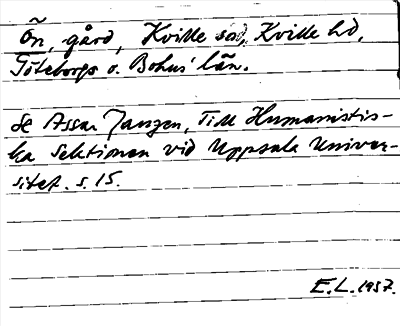 Ön, gård, Kville sn, Kville hd,
Göteborgs o. Bohus' län.
Se Assar Janzén, Till Humanistis-
ka Sektionen vid Uppsala Univer-
sitet. s. 15.
E.L. 1957.